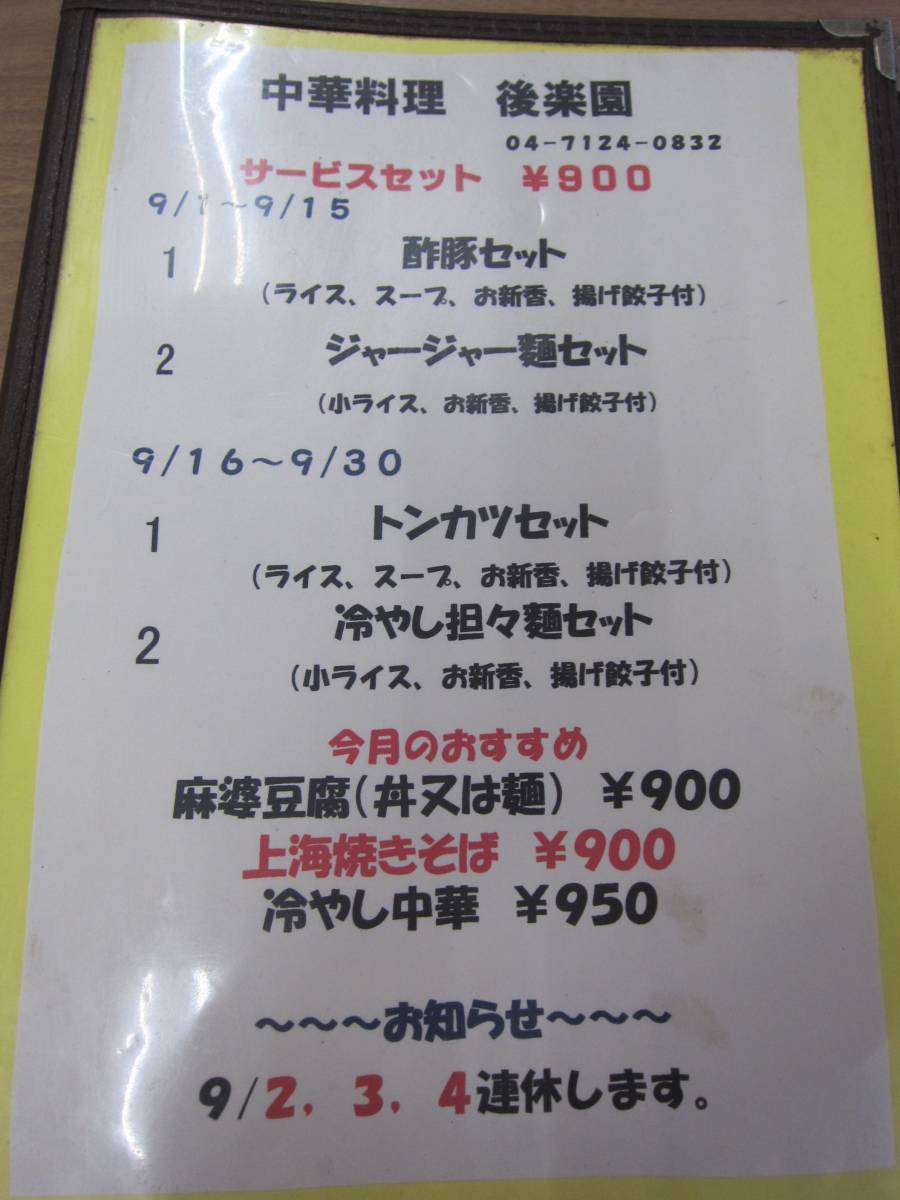 中華料理 後楽園
04-7124-0832
サービスセット ￥900
9/1～9/15
1 酢豚セット
(ライス、スープ、お新香、揚げ餃子付)
2 ジャージャー麺セット
(小ライス、お新香、揚げ餃子付)
9/16～9/30
1 トンカツセット
(ライス、スープ、お新香、揚げ餃子付)
2 冷やし担々麺セット
(小ライス、お新香、揚げ餃子付)
今月のおすすめ
麻婆豆腐(丼又は麺) ￥900
上海焼きそば ￥900
冷やし中華 ￥950
～～～お知らせ～～～
9/2, 3, 4連休します。